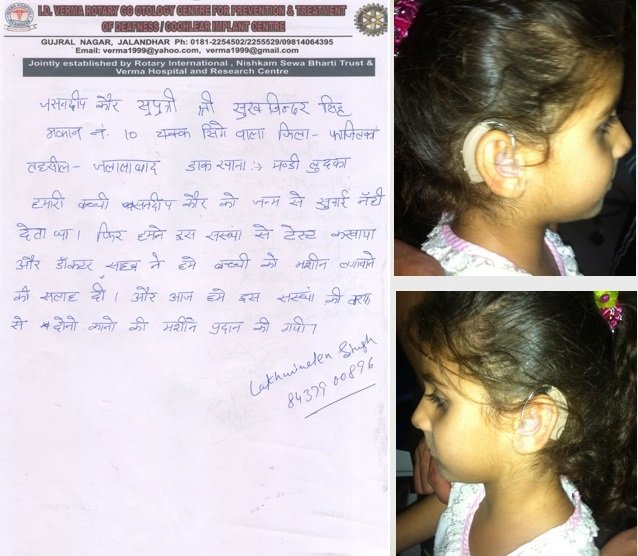 I.D. VERMA ROTARY CG OTOLOGY CENTRE FOR PREVENTION & TREATMENT
OF DEAFNESS / COCHLEAR IMPLANT CENTRE
GUJRAL NAGAR, JALANDHAR Ph: 0181-2254502/2255529/09814064395
Email: verma1999@yahoo.com, verma1999@gmail.com
Jointly established by Rotary International , Nishkam Sewa Bharti Trust &
Verma Hospital and Research Centre
जसनदीप कौर सुपुत्री श्री सुखजिन्दर सिंह
मकान नं. 10 चक्क सिंगे वाला जिला - फाजिलका
तहसील - जलालाबाद डाकखाना :- मण्डी लुदका
हमारी बच्ची जसनदीप कौर को जन्म से सुनाई नॅही
देता था। फिर हमने इस संस्था से टेस्ट करवाया
और डॉक्टर साहब ने हमे बच्ची को मशीन लगवाने
की सलाह दी। और आज हमे इस संस्था की तरफ
से दोनो कानो की मशीने प्रदान की गयी।
Singh
8437900896